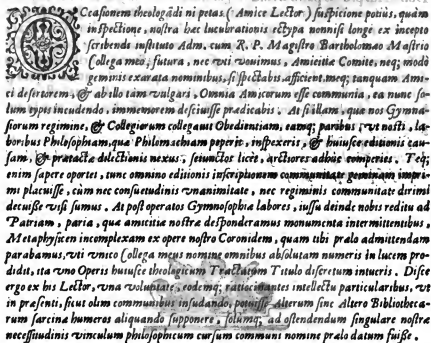 OCcasionem theologãdi ni petas (Amice Lector) suspicione potiùs, quàm
inspectione, nostra hæc lucubrationis ectypa nonnisi longè ex incepto
scribendi instituto Adm. cum R. P. Magistro Bartholomæo Mastrio
Collega meo; futura, nec vti vouimus, Amicitiæ Comite, neq; modò
geminis exarata nominibus, si spectabis, afficient, meq; tanquam Ami-
ci desertorem, & ab illo tàm vulgari, Omnia Amicorum esse communia, ea nunc so-
lum typis incudendo, immemorem desciuisse prædicabis. At si illam, quæ nos Gymna-
siorum regimine, & Collegiorum collegauit Obedientiam, eamq; paribus, vt nosti, la-
boribus Philosophiam, quæ Philomachiam peperit, inspexeris, & huiusce editionis cau-
sam, & pratactæ delectionis nexus, seiunctos licèt, arctiores adhuc comperies. Teq;
enim sapere oportet, tunc omnino editionis inscriptionem communitatæ geminam impri-
mi placuisse, cùm nec consuetudinis vnanimitate, nec regiminis communitate dirimi
decuisse visi sumus. At post operatos Gymnosophiæ labores, iussu deinde nobis reditu ad
Patriam, paria, quæ amicitiæ nostræ desponderamus monumenta intermittentibus,
Metaphysicen incomplexam ex opere nostro Coronidem, quam tibi prælo admittendam
parabamus, vti vnico Collega meus nomine omnibus absolutam numeris in lucem pro-
didit, ita vno Operis huiusce theologicum Tractatum Titulo discretum intueris. Disce
ergo ex his Lector, vna voluntate, eodemq; ratiocinantes intellectu particularibus, vt
in præsenti, sicut olim communibus insudando, potuisse Alterum sinè Altero Bibliotheca-
rum sarcinæ humeros aliquando supponere, solumq; ad ostendendum singulare nostræ
necessitudinis vinculum philosophicum cursum communi nomine prælo datum fuisse.